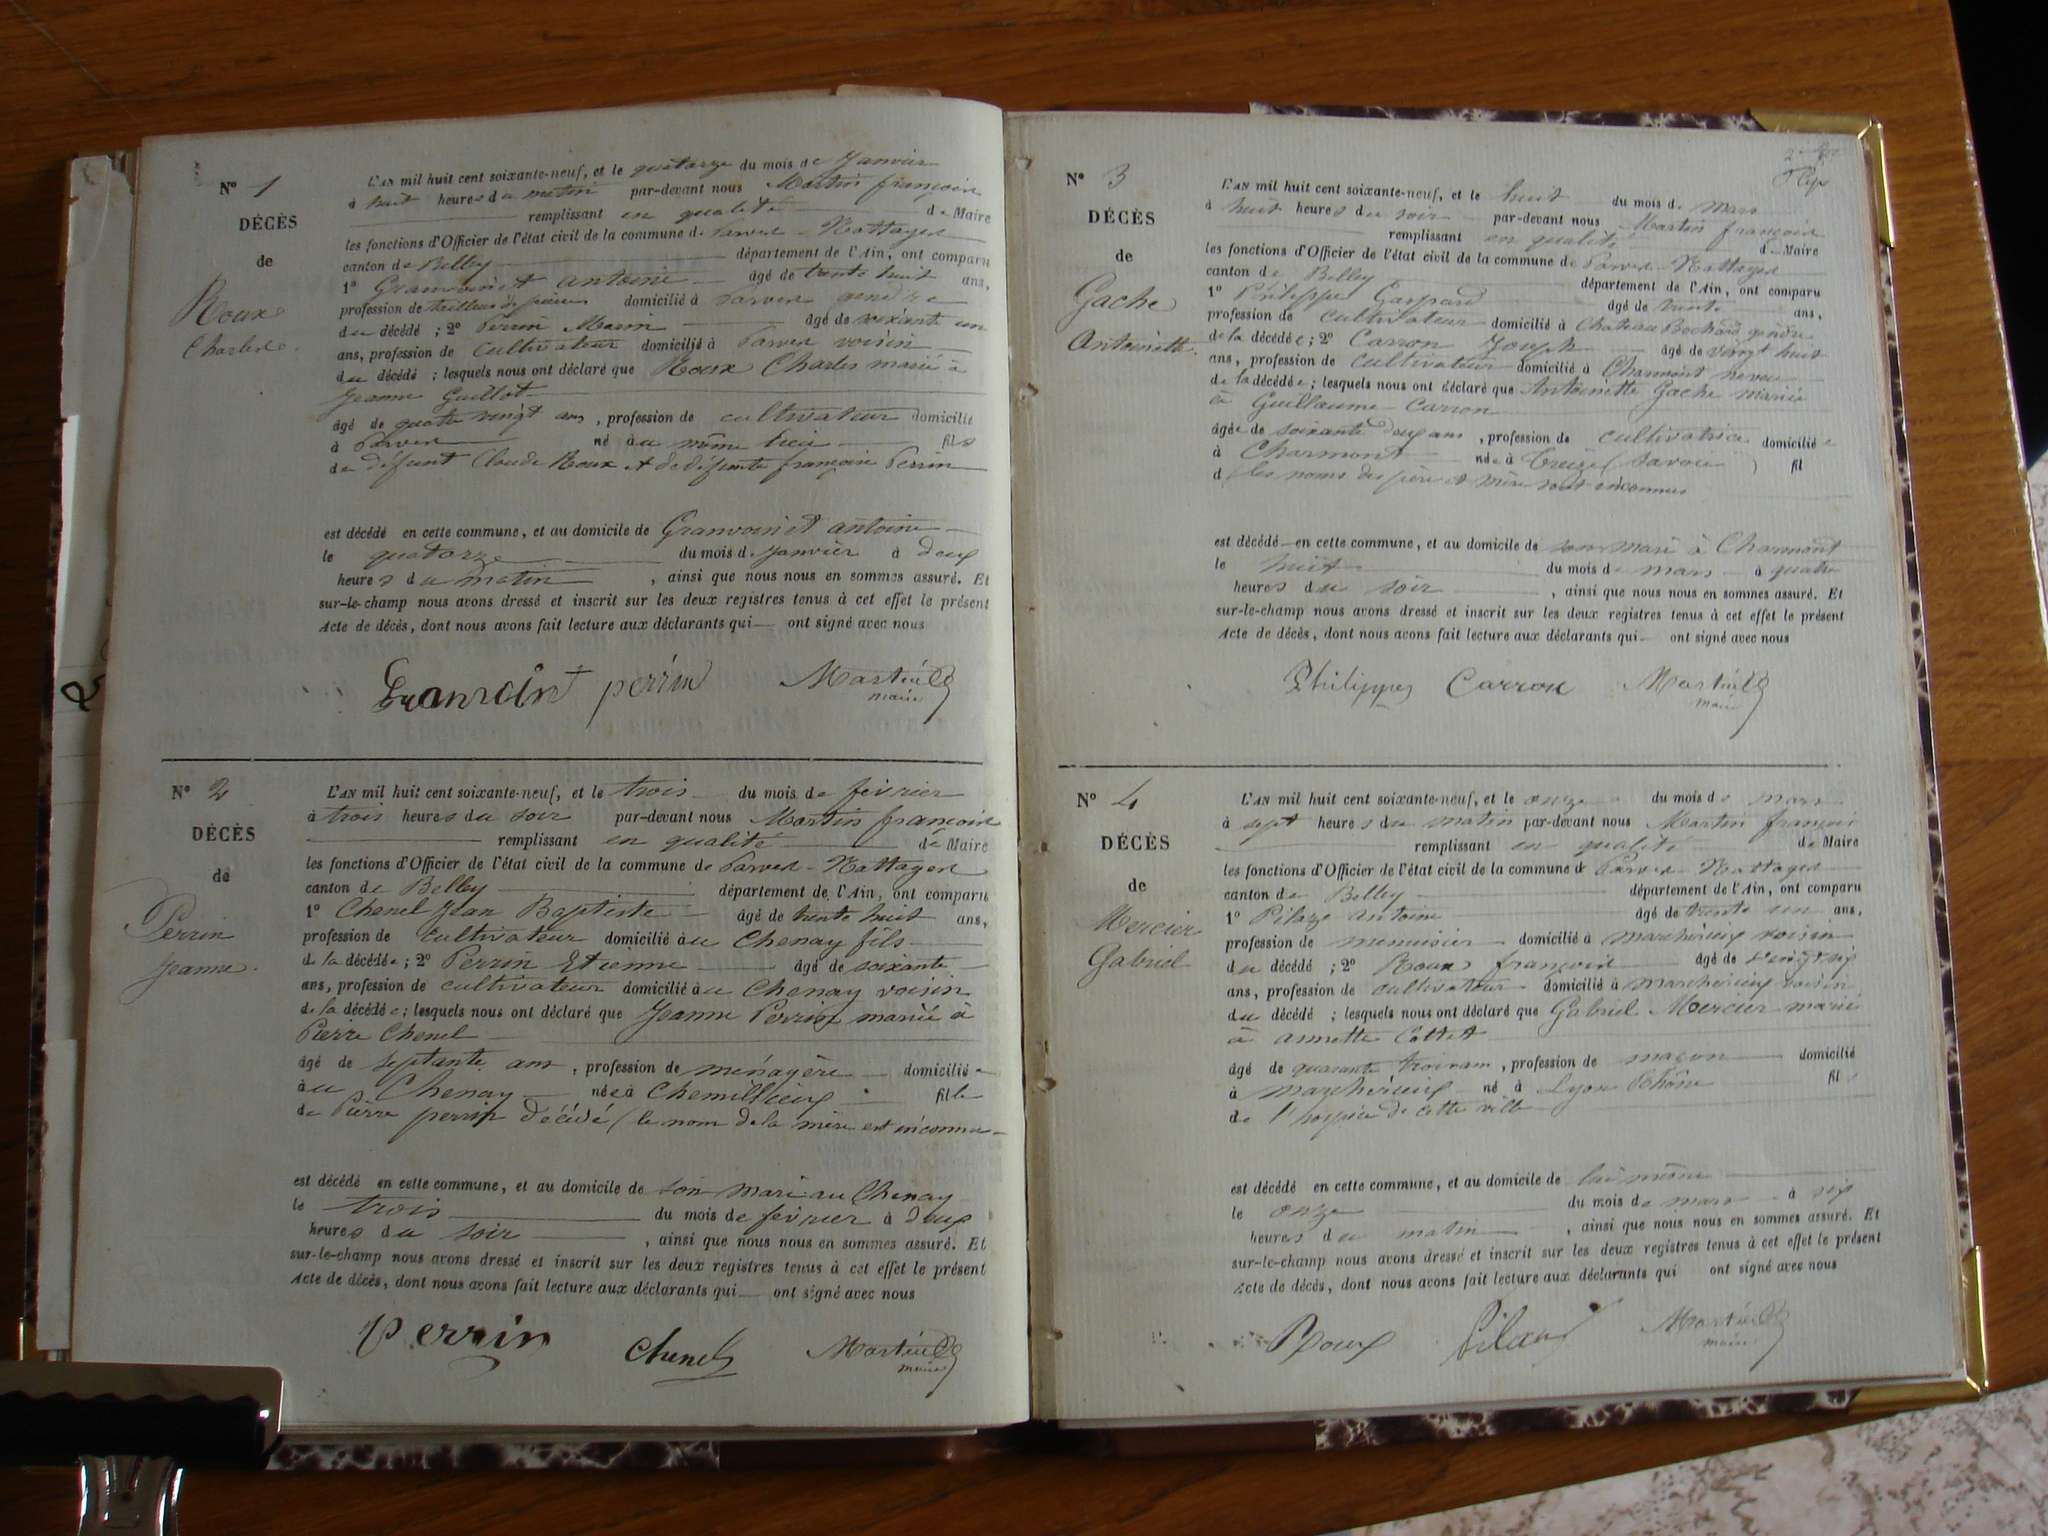 N° 1
DÉCÈS
de
Roux
Charles
L'AN mil huit cent soixante-neuf, et le quatorze du mois de Janvier
à huit heures du matin par-devant nous Martin françois
remplissant en qualité de Maire
les fonctions d'Officier de l'état civil de la commune de Parves-Nattages
canton de Belley département de l'Ain, ont comparu
1° Granvoinet Antoine âgé de trente huit ans,
profession de tailleur de pierres domicilié à Parves gendre
du décédé ; 2° Perrin Marin âgé de soixante un
ans, profession de cultivateur domicilié à Parves voisin
du décédé ; lesquels nous ont déclaré que Roux Charles marié à
Jeanne Guillot
âgé de quatre vingt ans, profession de cultivateur domicilié
à Parves né au même lieu fils
de défunt Claude Roux et de défunte françoise Perrin
est décédé en cette commune, et au domicile de Granvoinet antoine
le quatorze du mois de Janvier à deux
heures du matin, ainsi que nous nous en sommes assuré. Et
sur-le-champ nous avons dressé et inscrit sur les deux registres tenus à cet effet le présent
Acte de décès, dont nous avons fait lecture aux déclarants qui ont signé avec nous
perrin Martin
maire
N° 2
DÉCÈS
de
Perrin
Jeanne
L'AN mil huit cent soixante-neuf, et le trois du mois de février
à trois heures du soir par-devant nous Martin françois
remplissant en qualité de Maire
les fonctions d'Officier de l'état civil de la commune de Parves-Nattages
canton de Belley département de l'Ain, ont comparu
1° Chenel Jean Baptiste âgé de trente huit ans,
profession de cultivateur domicilié au Chenay fils
de la décédée ; 2° Perrin Etienne âgé de soixante
ans, profession de cultivateur domicilié au Chenay voisin
de la décédée ; lesquels nous ont déclaré que Jeanne Perrin mariée à
Pierre Chenel
âgé de septante ans, profession de ménagère domiciliée
au Chenay née à Chemillieux fille
de Pierre perrin décédé (le nom de la mère est inconnu
est décédé en cette commune, et au domicile de son mari au Chenay
le trois du mois de février à deux
heures du soir, ainsi que nous nous en sommes assuré. Et
sur-le-champ nous avons dressé et inscrit sur les deux registres tenus à cet effet le présent
Acte de décès, dont nous avons fait lecture aux déclarants qui ont signé avec nous
Perrin Chenel Martin
maire
N° 3
DÉCÈS
de
Gache
Antoinette
L'AN mil huit cent soixante-neuf, et le huit du mois de mars
à huit heures du soir par-devant nous Martin françois
remplissant en qualité de Maire
les fonctions d'Officier de l'état civil de la commune de Parves-Nattages
canton de Belley département de l'Ain, ont comparu
1° Philippe Gaspard âgé de trente ans,
profession de cultivateur domicilié à Chateau Bochard gendre
de la décédée ; 2° Carron Joseph âgé de vingt huit
ans, profession de cultivateur domicilié à Charmont neveu
de la décédée ; lesquels nous ont déclaré que Antoinette Gache mariée
à Guillaume Carron
âgée de soixante deux ans, profession de cultivatrice domiciliée
à Charmont née à (Savoie) fil
d (les noms des père et mère sont inconnus
est décédé en cette commune, et au domicile de son mari à Charmont
le huit du mois de mars à quatre
heures du soir, ainsi que nous nous en sommes assuré. Et
sur-le-champ nous avons dressé et inscrit sur les deux registres tenus à cet effet le présent
Acte de décès, dont nous avons fait lecture aux déclarants qui ont signé avec nous
Philippe Carron Martin
maire
N° 4
DÉCÈS
de
Mercier
Gabriel
L'AN mil huit cent soixante-neuf, et le onze du mois de mars
à sept heures du matin par-devant nous Martin françois
remplissant en qualité de Maire
les fonctions d'Officier de l'état civil de la commune de Parves-Nattages
canton de Belley département de l'Ain, ont comparu
1° Pilaz Antoine âgé de trente un ans,
profession de menuisier domicilié à marchérieux voisin
du décédé ; 2° Roux françois âgé de vingt six
ans, profession de cultivateur domicilié à marchérieux voisin
du décédé ; lesquels nous ont déclaré que Gabriel Mercier marié
à annette Cottet
âgé de quarante trois ans, profession de maçon domicilié
à marchérieux né à Lyon Rhône fils
de l'hospice de cette ville
est décédé en cette commune, et au domicile de lui même
le onze du mois de mars à six
heures du matin, ainsi que nous nous en sommes assuré. Et
sur-le-champ nous avons dressé et inscrit sur les deux registres tenus à cet effet le présent
Acte de décès, dont nous avons fait lecture aux déclarants qui ont signé avec nous
Roux Pilaz Martin
maire